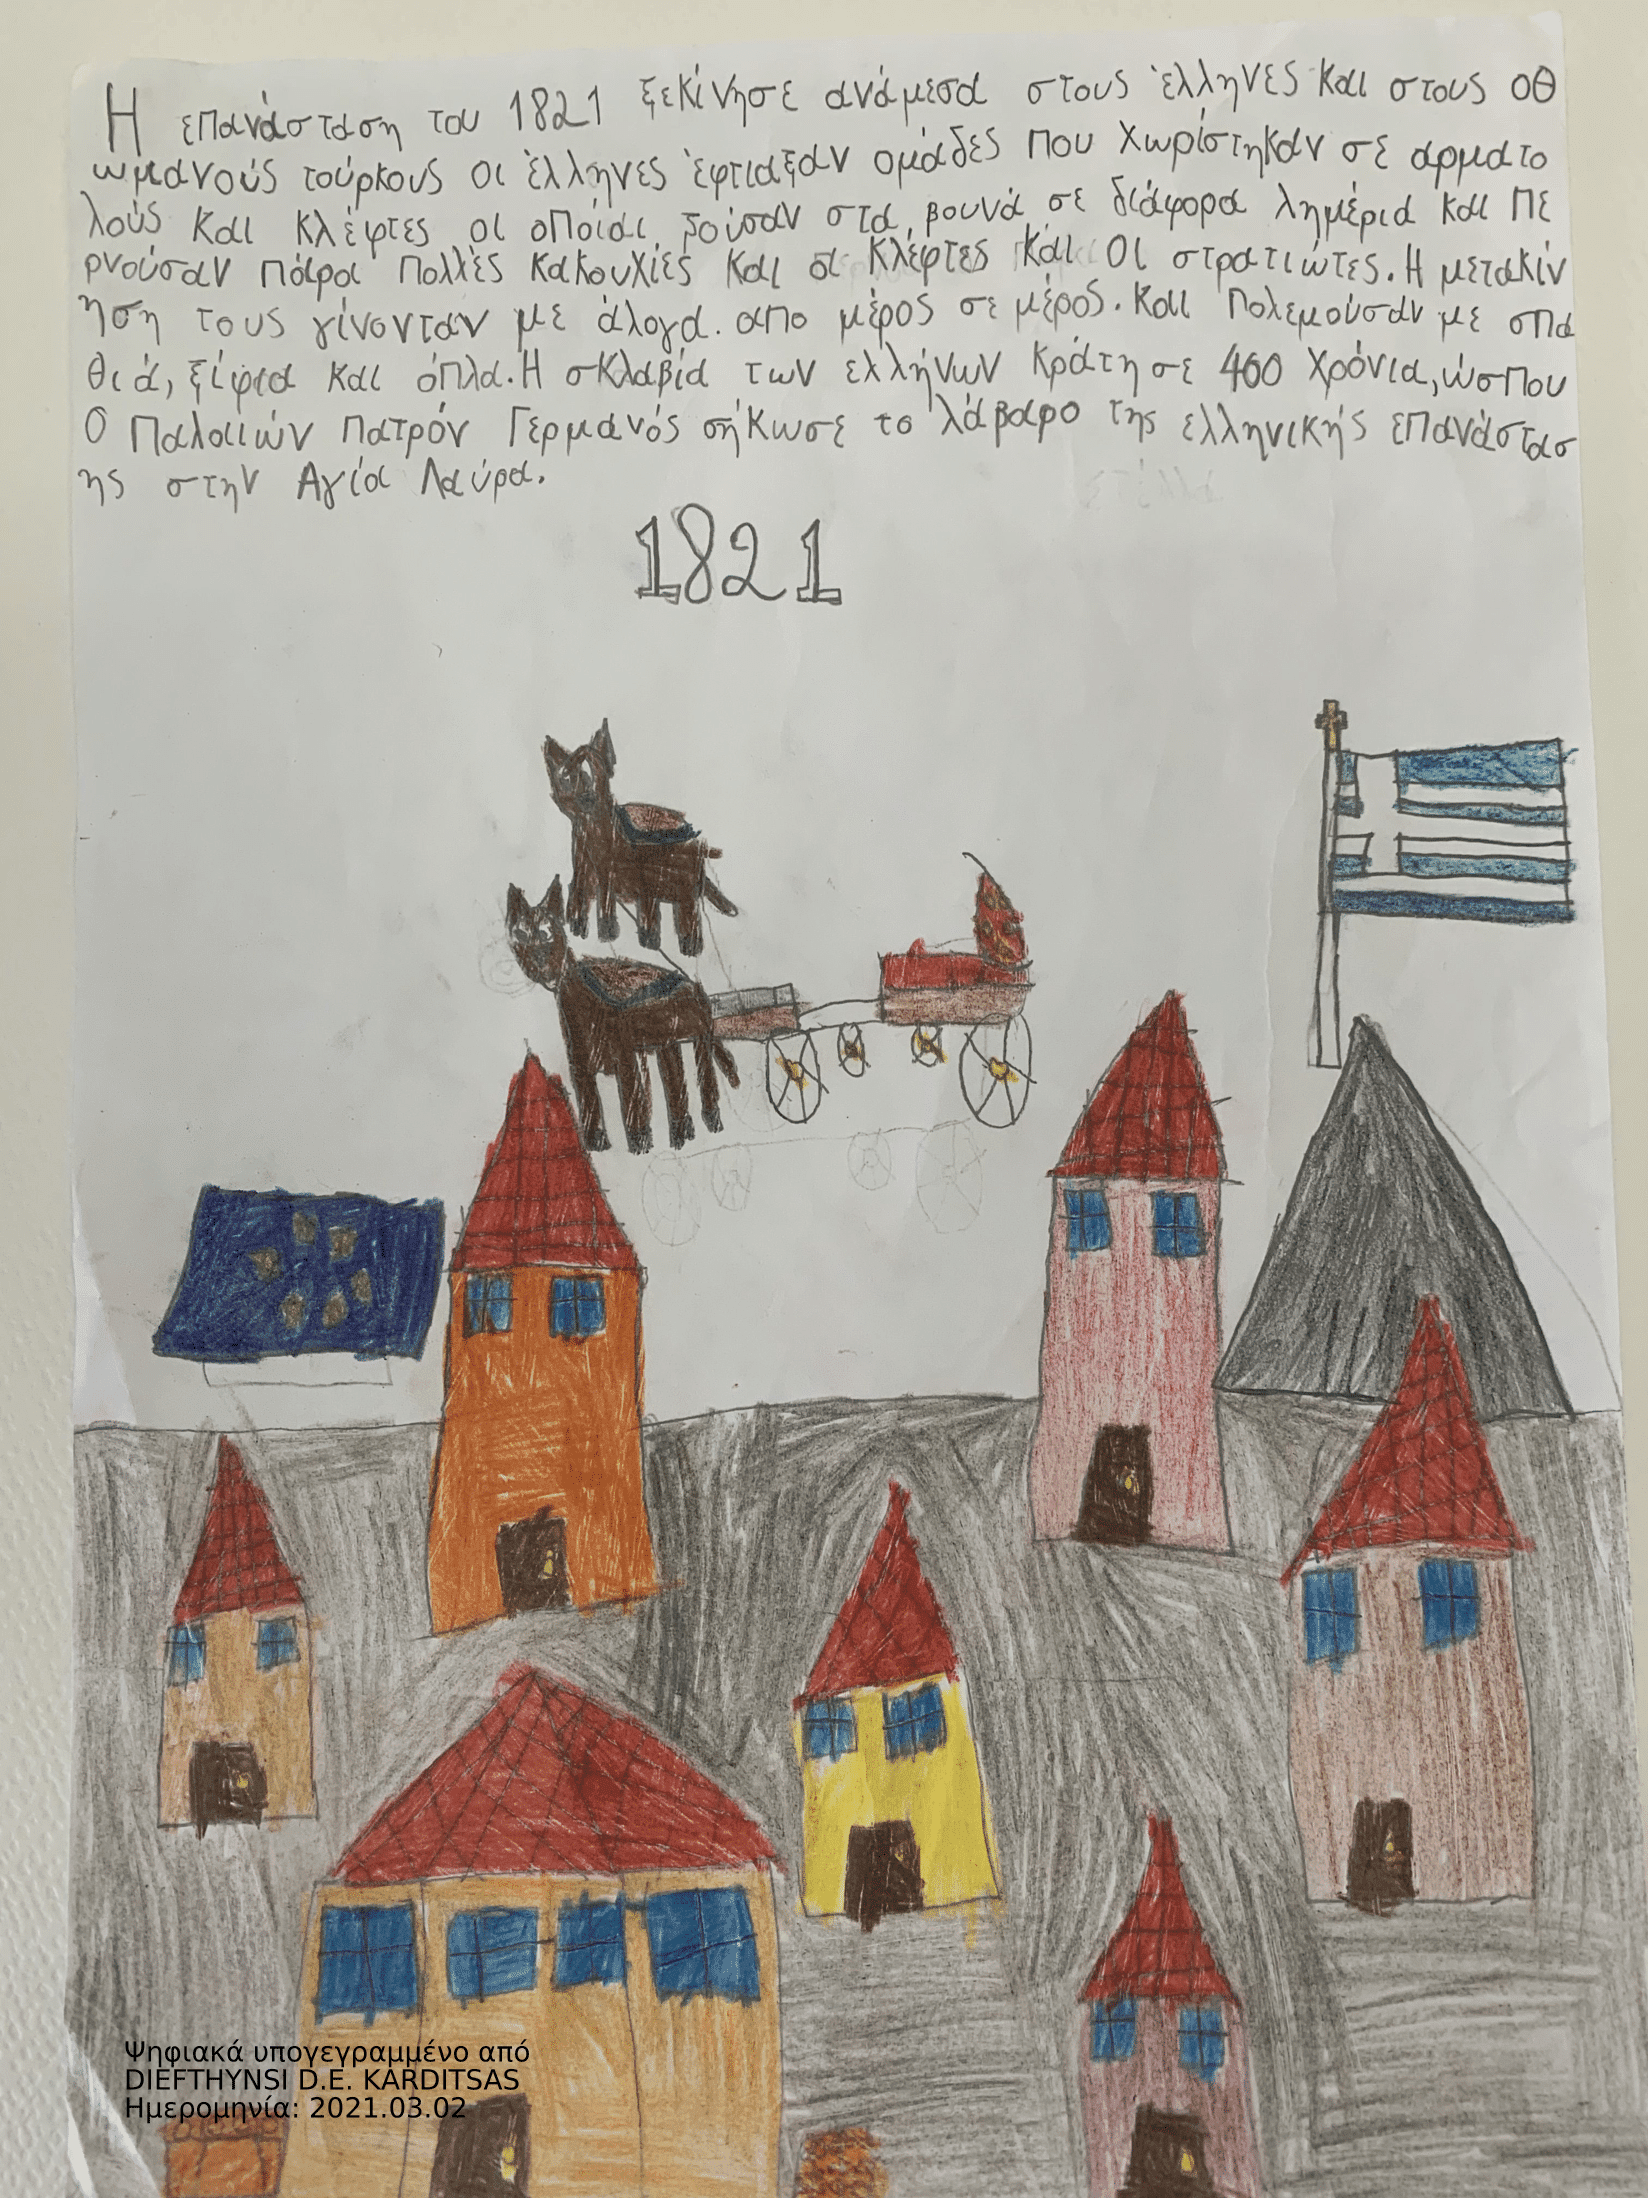 Η επανάσταση του 1821 ξεκίνησε ανάμεσα στους έλληνες και στους οθ
ωμανούς τούρκους οι έλληνες έφτιαξαν ομάδες που χωρίστηκαν σε αρματο
λούς και κλέφτες οι οποίοι ζούσαν στα βουνά σε διάφορα λημέρια και πε
ρνούσαν πάρα πολλές κακουχίες και οι κλέφτες και οι στρατιώτες. Η μετακίν
ηση τους γίνονταν με άλογα. απο μέρος σε μέρος. και πολεμούσαν με σπα
θιά, ξίφια και όπλα. Η σκλαβία των ελλήνων κράτησε 400 χρόνια, ώσπου
Ο Παλαιών Πατρόν Γερμανός σήκωσε το λάβαρο της ελληνικής επανάστασ
ης στην Αγία Λαύρα.
1821
Ψηφιακά υπογεγραμμένο από
DIEFTHYNSI D.E. KARDITSAS
Ημερομηνία: 2021.03.02